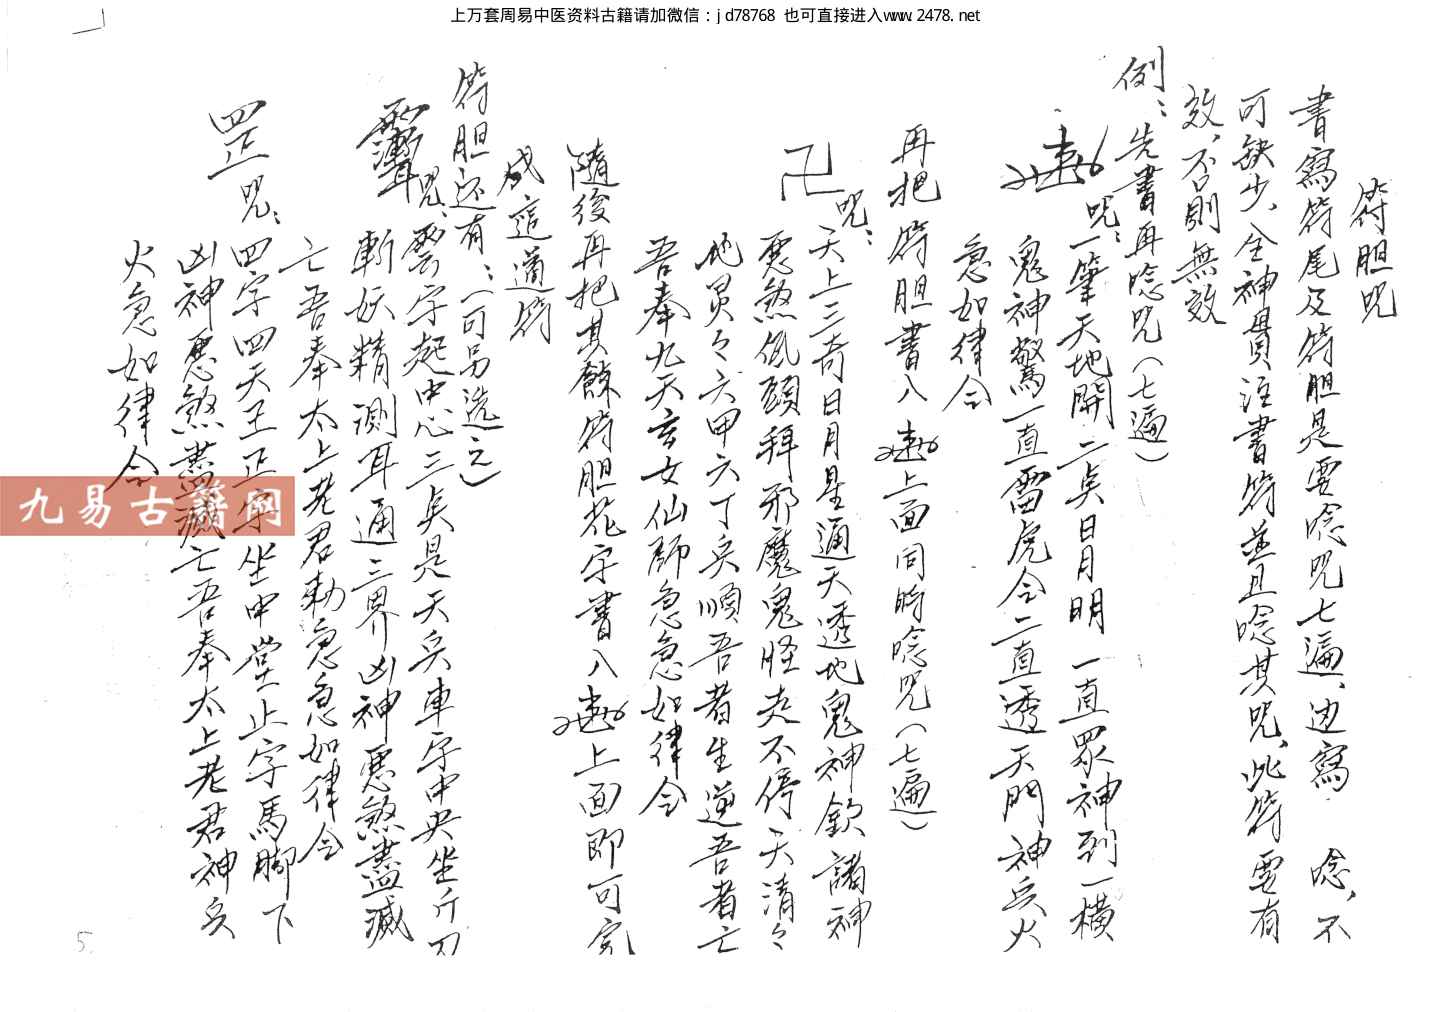 上万套周易中医资料古籍请加微信：jd78768 也可直接进入www.2478.net
符胆咒
書寫符尾及符胆是要唸咒七遍、边寫 唸，不
可缺少、全神貫注書符並且唸其咒、此符要有
效、不則無效
例：先書再唸咒（七遍）
咒：一筆天地開二矣日月明 一直眾神到一橫
鬼神驚一直雷虎令二直透天門神兵火
急如律令
再把符胆書入 上面同時唸咒（七遍）
卍咒：天上三奇日月星通天透地鬼神欽諸神
惡煞低頭拜邪魔鬼怪走不停天清々
地灵々六甲六丁兵順吾者生逆吾者亡
吾奉九天玄女仙師急急如律令
隨後再把其餘符胆花字書入 上面即可完
成這道符
符胆还有：（可另选之）
咒：字起中心三矣是天兵車字中央坐斤刀
斬妖精測耳通三界凶神惡煞盡滅
亡吾奉太上老君勅急急如律令
四正咒：四字四天王正字坐中堂止字馬脚下
凶神惡煞盡滅亡吾奉太上老君神兵
火急如律令
九易古籍网
5